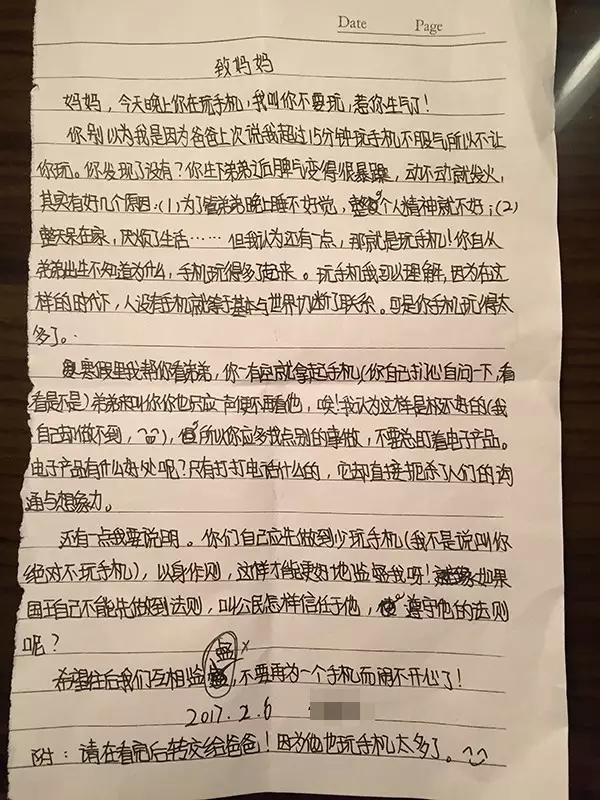 Date Page
致妈妈
妈妈，今天晚上你在玩手机，我叫你不要玩，惹你生气了！
你别以为我是因为爸爸上次说我超过15分钟玩手机不服气所以不让
你玩。你发现了没有？你生下弟弟近后脾气变得很暴躁，动不动就发火，
其实有好几个原因：(1)为了管弟弟晚上睡不好觉，整个人精神就不好；(2)
整天呆在家，厌烦了生活……但我认为还有一点，那就是玩手机！你自从
弟弟出生不知道为什么，手机玩得多了起来。玩手机我可以理解，因为在这
样的时代下，人没有手机就等于基本与世界切断了联系。可是你手机玩得太
多了。
寒假里我帮你看弟弟，你一有空就拿起手机(你自己扪心自问一下，看
看是不是)弟弟来叫你你也只应一声便不再看他，唉！我认为这样是极不好的(我
自己却做不到，)，所以你应多找点别的事做，不要总盯着电子产品。
电子产品有什么好处呢？只有打打电话什么的，它却直接扼杀了人们的沟
通与想象力。
还有一点我要说明。你们自己应先做到少玩手机(我不是说叫你
绝对不玩手机)，以身作则，这样才能更好地监督我呀！如果
国王自己不能先做到法则，叫公民怎样信任于他，遵守他的法则
呢？
希望往后我们互相监，不要再为一个手机而闹不开心了！
2017.2.6
附：请在看完后转交给爸爸！因为他也玩手机太多了。